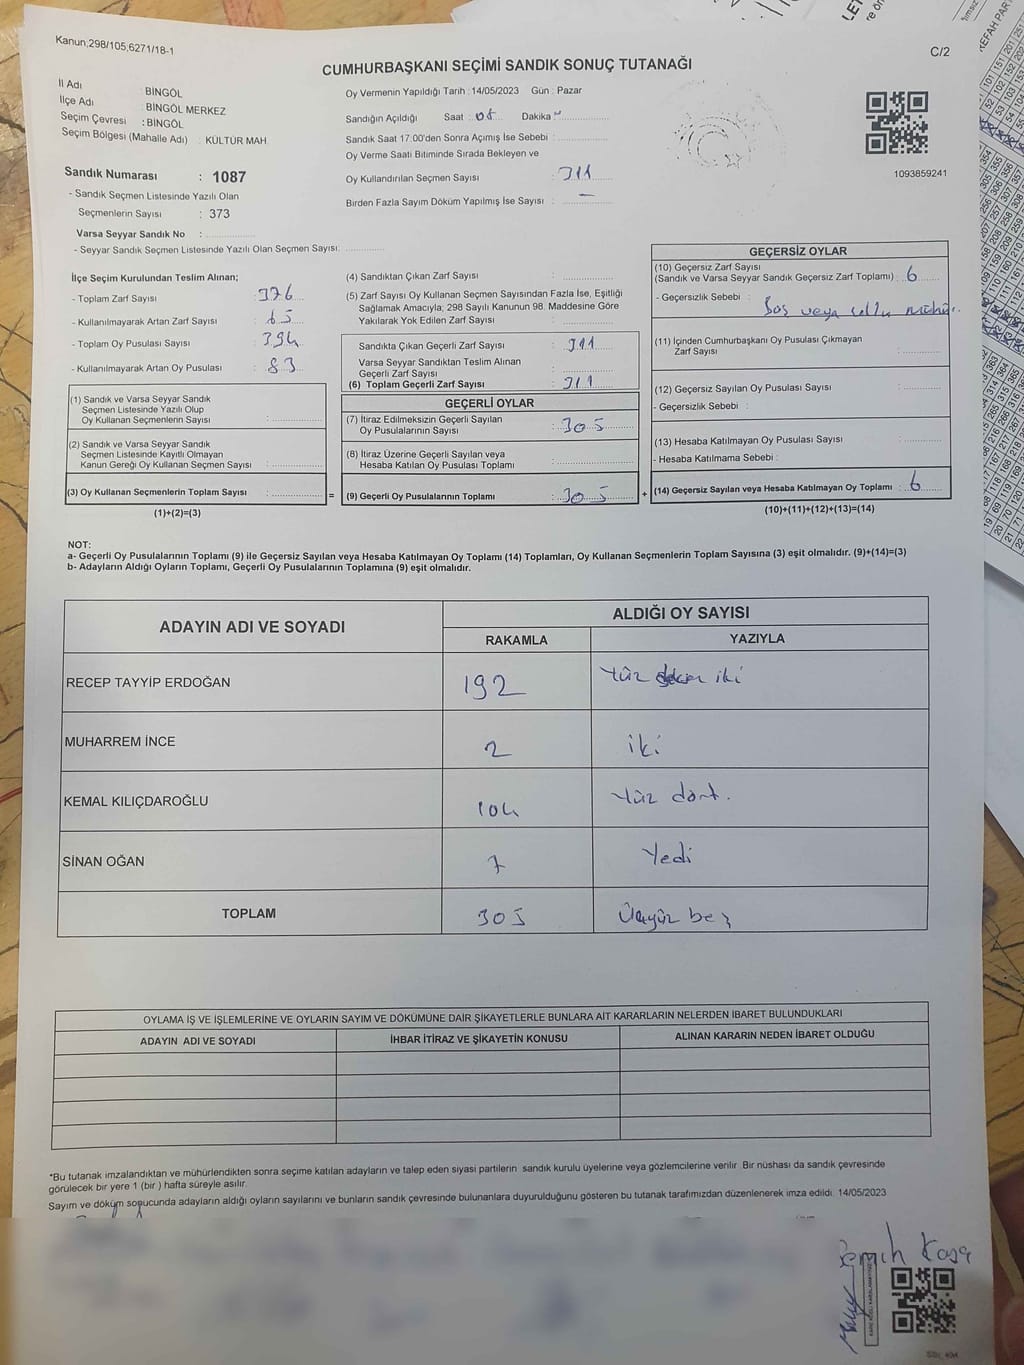 Kanun;298/105;6271/18-1
C/2
CUMHURBAŞKANI SEÇİMİ SANDIK SONUÇ TUTANAĞI
İl Adı BİNGÖL
İlçe Adı : BİNGÖL MERKEZ
Seçim Çevresi : BİNGÖL
Seçim Bölgesi (Mahalle Adı) : KÜLTÜR MAH.
Sandık Numarası : 1087
- Sandık Seçmen Listesinde Yazılı Olan
Seçmenlerin Sayısı : 373
Varsa Seyyar Sandık No :
- Seyyar Sandık Seçmen Listesinde Yazılı Olan Seçmen Sayısı:
Oy Vermenin Yapıldığı Tarih :14/05/2023 Gün : Pazar
Sandığın Açıldığı Saat : Dakika
Sandık Saat 17:00'den Sonra Açımış İse Sebebi :
Oy Verme Saati Bitiminde Sırada Bekleyen ve
Oy Kullandırılan Seçmen Sayısı : 311
Birden Fazla Sayım Döküm Yapılmış İse Sayısı : –
1093859241
İlçe Seçim Kurulundan Teslim Alınan;
- Toplam Zarf Sayısı : 376
- Kullanılmayarak Artan Zarf Sayısı : 65
- Toplam Oy Pusulası Sayısı : 394
- Kullanılmayarak Artan Oy Pusulası : 83
(1) Sandık ve Varsa Seyyar Sandık
Seçmen Listesinde Yazılı Olup
Oy Kullanan Seçmenlerin Sayısı :
(2) Sandık ve Varsa Seyyar Sandık
Seçmen Listesinde Kayıtlı Olmayan
Kanun Gereği Oy Kullanan Seçmen Sayısı :
(3) Oy Kullanan Seçmenlerin Toplam Sayısı :
(1)+(2)=(3)
=
(4) Sandıktan Çıkan Zarf Sayısı :
(5) Zarf Sayısı Oy Kullanan Seçmen Sayısından Fazla İse, Eşitliği
Sağlamak Amacıyla; 298 Sayılı Kanunun 98. Maddesine Göre
Yakılarak Yok Edilen Zarf Sayısı :
Sandıkta Çıkan Geçerli Zarf Sayısı : 311
Varsa Seyyar Sandıktan Teslim Alınan
Geçerli Zarf Sayısı :
(6) Toplam Geçerli Zarf Sayısı : 311
GEÇERLİ OYLAR
(7) İtiraz Edilmeksizin Geçerli Sayılan
Oy Pusulalarının Sayısı : 305
(8) İtiraz Üzerine Geçerli Sayılan veya
Hesaba Katılan Oy Pusulası Toplamı :
(9) Geçerli Oy Pusulalarının Toplamı : 305
+
GEÇERSİZ OYLAR
(10) Geçersiz Zarf Sayısı
(Sandık ve Varsa Seyyar Sandık Geçersiz Zarf Toplamı) : 6
- Geçersizlik Sebebi : Boş veya mühür.
(11) İçinden Cumhurbaşkanı Oy Pusulası Çıkmayan
Zarf Sayısı :
(12) Geçersiz Sayılan Oy Pusulası Sayısı :
- Geçersizlik Sebebi :
(13) Hesaba Katılmayan Oy Pusulası Sayısı :
- Hesaba Katılmama Sebebi :
(14) Geçersiz Sayılan veya Hesaba Katılmayan Oy Toplamı : 6
(10)+(11)+(12)+(13)=(14)
NOT:
a- Geçerli Oy Pusulalarının Toplamı (9) ile Geçersiz Sayılan veya Hesaba Katılmayan Oy Toplamı (14) Toplamları, Oy Kullanan Seçmenlerin Toplam Sayısına (3) eşit olmalıdır. (9)+(14)=(3)
b- Adayların Aldığı Oyların Toplamı, Geçerli Oy Pusulalarının Toplamına (9) eşit olmalıdır.
ADAYIN ADI VE SOYADI
ALDIĞI OY SAYISI
RAKAMLA YAZIYLA
RECEP TAYYİP ERDOĞAN 192 Yüz iki
MUHARREM İNCE 2 iki
KEMAL KILIÇDAROĞLU 104 Yüz dört.
SİNAN OĞAN 7 Yedi
TOPLAM 305 Üçyüz beş
OYLAMA İŞ VE İŞLEMLERİNE VE OYLARIN SAYIM VE DÖKÜMÜNE DAİR ŞİKAYETLERLE BUNLARA AİT KARARLARIN NELERDEN İBARET BULUNDUKLARI
ADAYIN ADI VE SOYADI İHBAR İTİRAZ VE ŞİKAYETİN KONUSU ALINAN KARARIN NEDEN İBARET OLDUĞU
*Bu tutanak imzalandıktan ve mühürlendikten sonra seçime katılan adayların ve talep eden siyasi partilerin sandık kurulu üyelerine veya gözlemcilerine verilir. Bir nüshası da sandık çevresinde
görülecek bir yere 1 (bir ) hafta süreyle asılır.
Sayım ve döküm sonucunda adayların aldığı oyların sayılarını ve bunların sandık çevresinde bulunanlara duyurulduğunu gösteren bu tutanak tarafımızdan düzenlenerek imza edildi. 14/05/2023